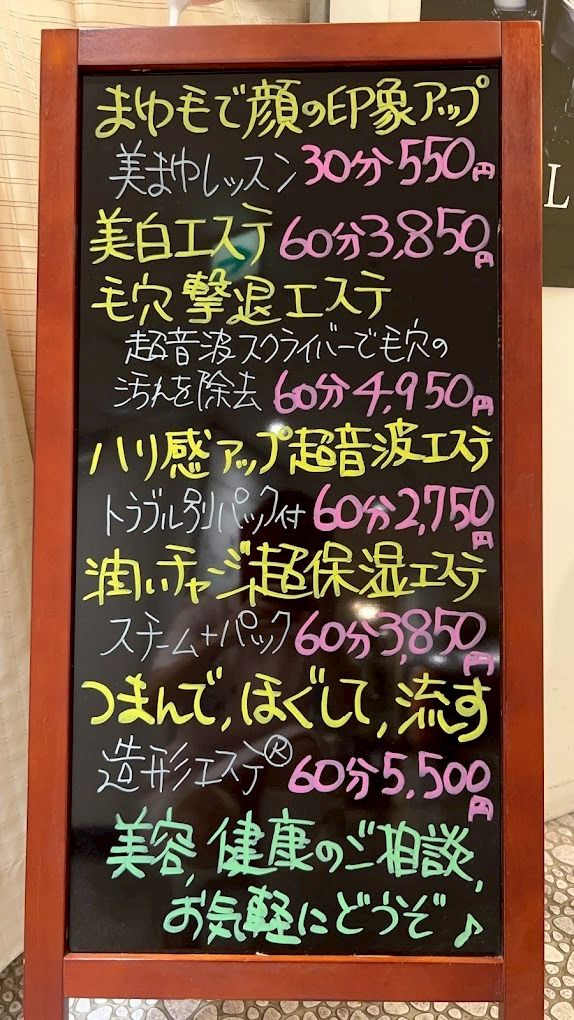 まゆ毛で顔の印象アップ
美まゆレッスン 30分 550円
美白エステ 60分 3,850円
毛穴撃退エステ
超音波スクライバーで毛穴の
汚れを除去 60分 4,950円
ハリ感アップ超音波エステ
トラブル別パック付 60分 2,750円
潤いチャージ超保湿エステ
スチーム+パック 60分 3,850円
つまんで,ほぐして,流す
造形エステ® 60分 5,500円
美容,健康のご相談,
お気軽にどうぞ♪
L